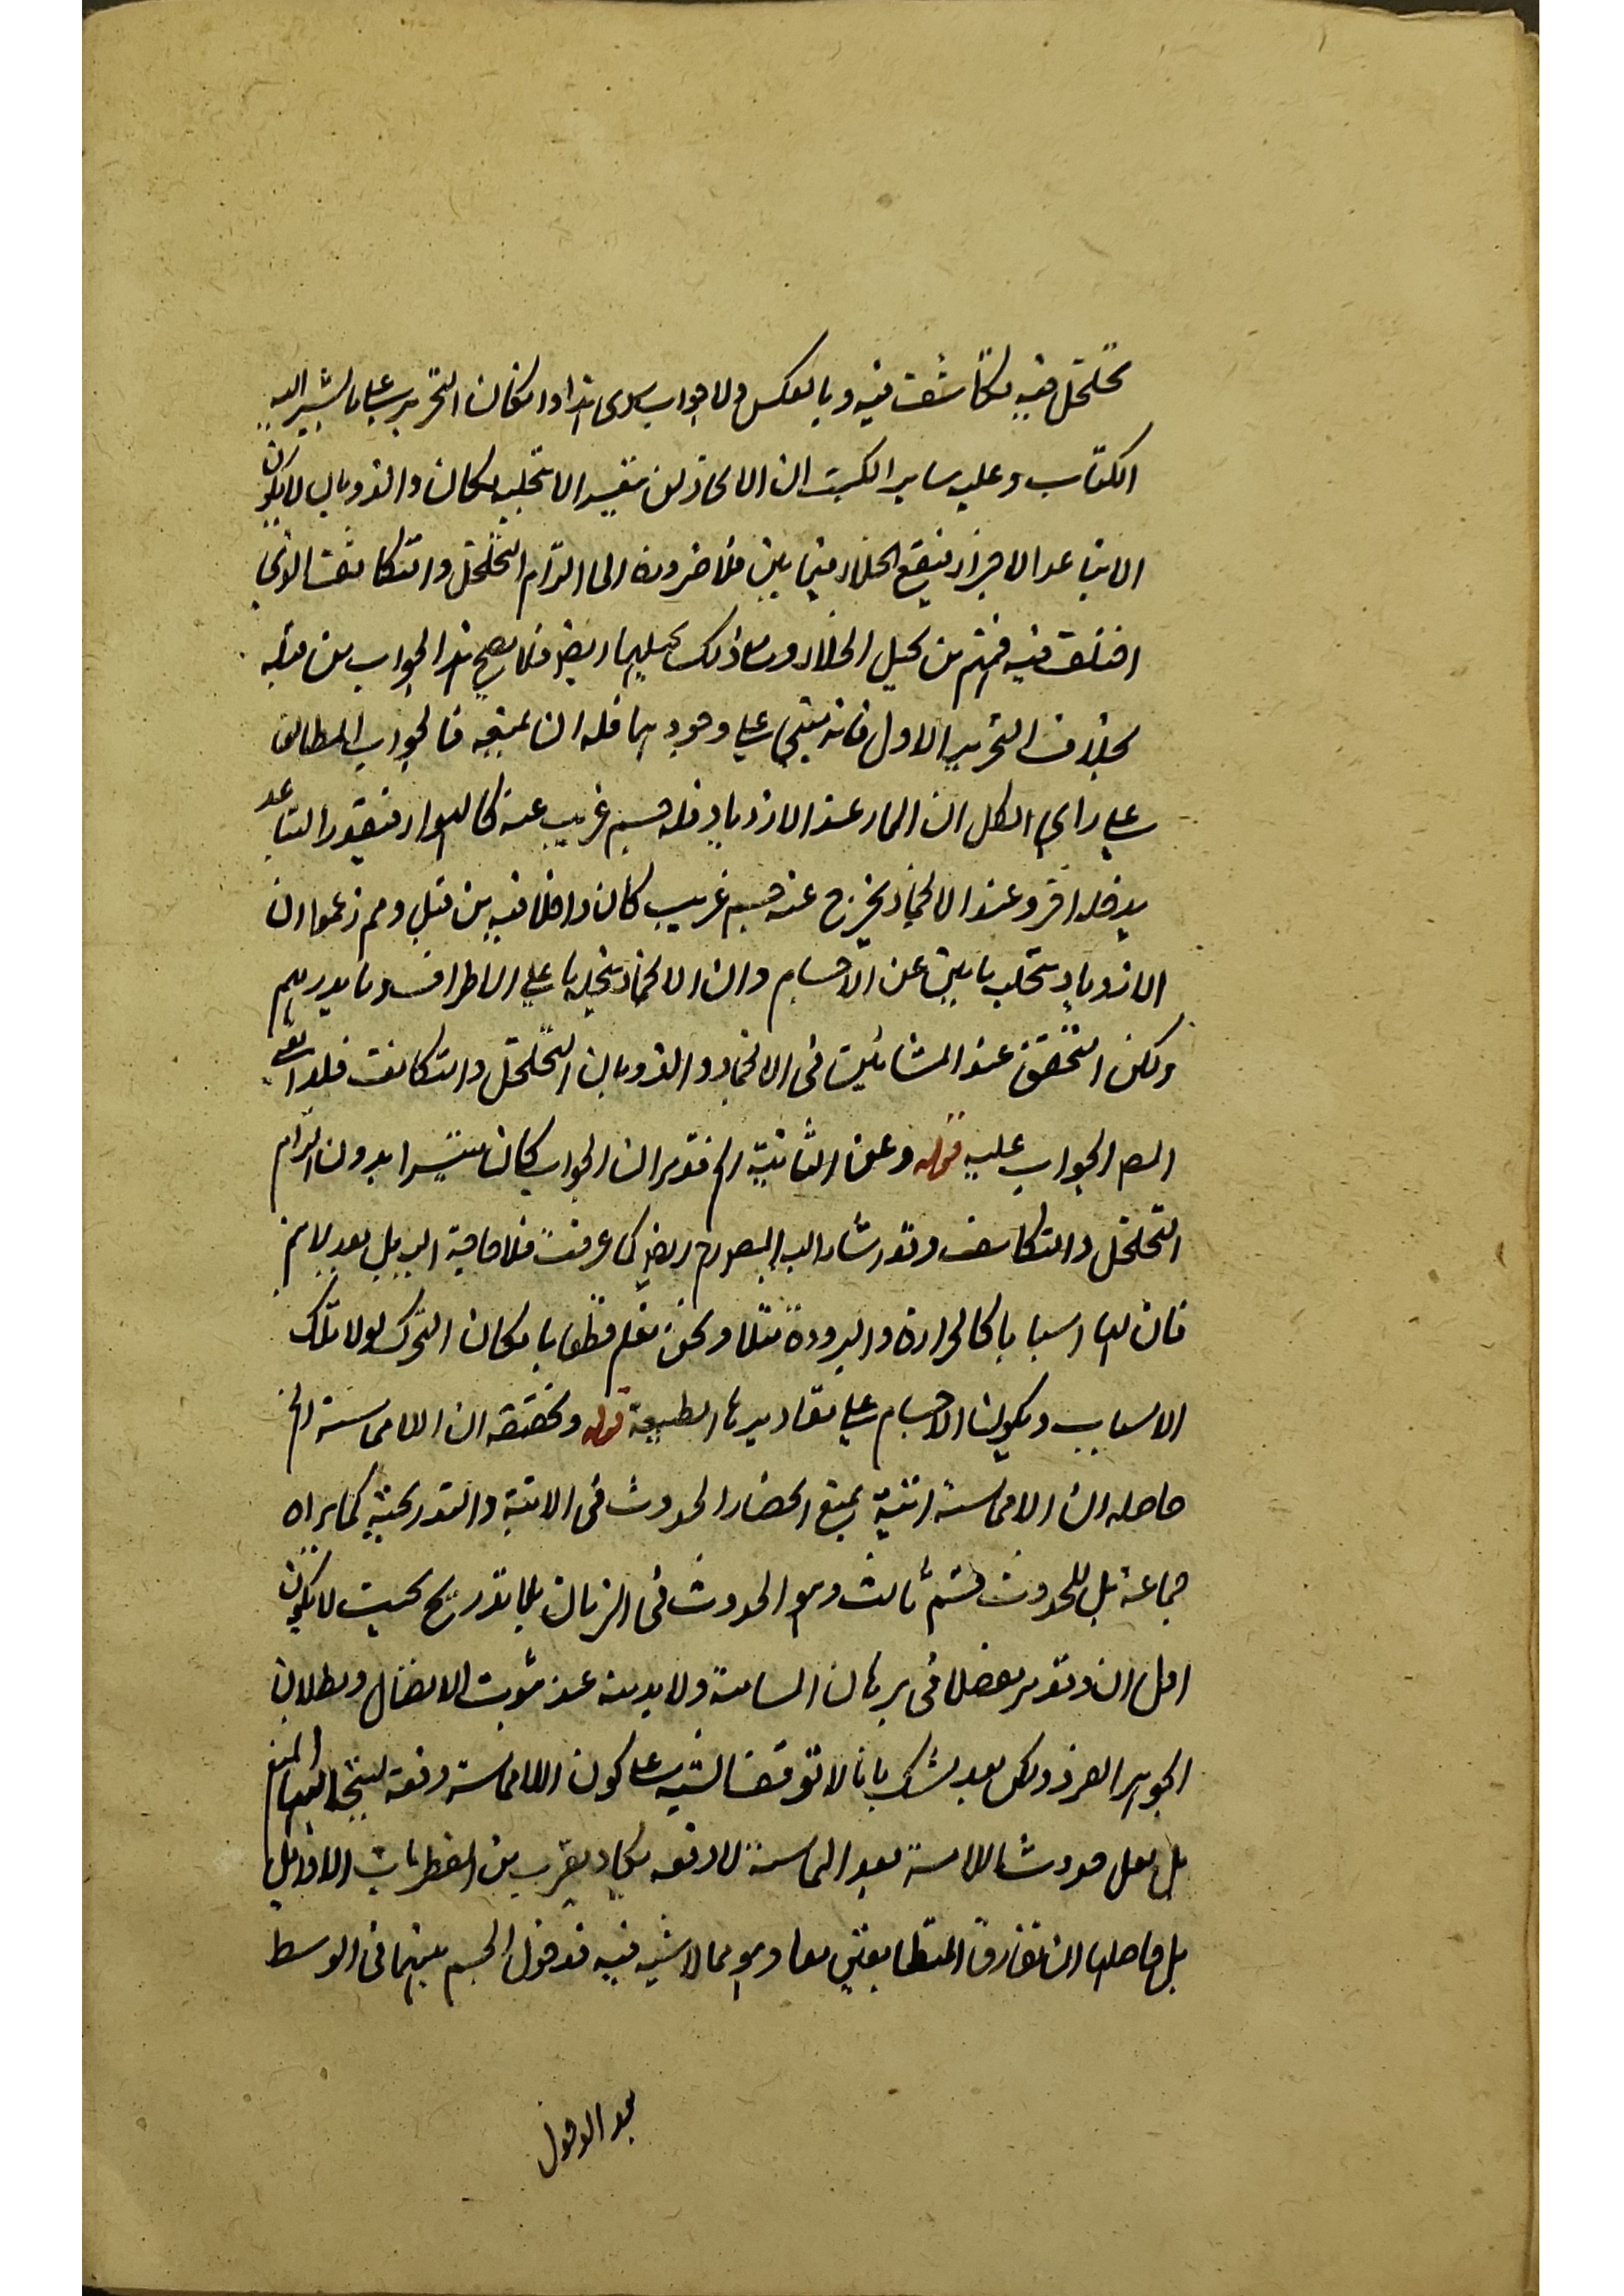 تخلخل فيه تكاثف فيه وبالعكس ولا جواب سوى هذا واما كان التحرير على ما يشير اليه
الكتاب وعليه ساير الكتب ان الانجماد تفسير الاستحلب كان والذوبان لا يكون
الا بتباعد الاجزاء فيقع الخلاء فيما بين فلا ضرورة الى التزام التخلخل والتكاثف الذى
اختلف فيه فمنهم من يحيل الخلاء ومع ذلك يحيلهما ايضا فلا يصح هذا الجواب من قبله
بخلاف التحرير الاول فانه مبنى على وجودهما فله ان يمنعه فالجواب المطابق
على راى الكل ان الماء عند الازدياد فله جسم غريب عنه كالهواء فيقود التباعد
يدخله اخر وعند الانجماد يخرج عنه جسم غريب كان داخلا فيه من قبل وهم زعموا ان
الازدياد يتحلب ما بين عن الاجسام وان الانجماد يتخلها على الاطراف وما يدريهم
ولكن التحقق عند المشائين فى الانجماد والذوبان التخلخل والتكاثف فلذا بنى
المص الجواب عليه قوله وعن الثانية الخ فقد مر ان الجواب كان متيسرا بدون التزام
التخلخل والتكاثف وقد اشار اليه المص رح ايضا كما عرفت فلا حاجة اليه بل بعد لا يتم
فان لهما اسبابا كالحرارة والبرودة مثلا ونحن نعلم قطعا بامكان التحرك لولا تلك
الاسباب وبكون الاجسام على مقاديرها الطبيعة قوله وتحقيقه ان اللامماسة الخ
حاصله ان اللامماسة انية يمنع انحضار الحدوث فى الانية والتدريجية كما يراه
جماعة بل للحدوث قسم ثالث وهو الحدوث فى الزمان بلا تدريج بحيث لا يكون
اول ان وقد مر مفصلا فى برهان المسامتة ولا بد منه عند ثبوت الاتصال وبطلان
الجوهر الفرد ولكن بعد يشك بانا لا توقف الشبه على كون اللامماسة دفعة ليتجه اليها المنع
بل لعل حدوث اللامسة بعد المماسة لا دفعة يكاد يقرب من الفطريات الاوايل
بل حاصلها ان تفارق المتطابقين معا وهو مما لا شبه فيه فدخول الجسم بينهما فى الوسط
بعد الدخول